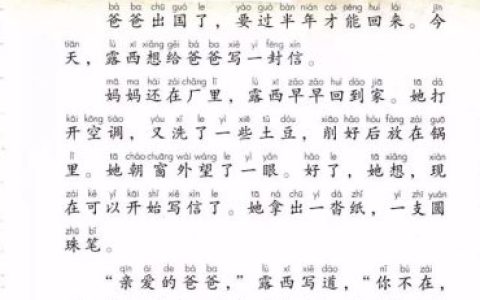 bà ba chū guó le yào guò bàn nián cái néng huí lái jīn
爸爸出国了，要过半年才能回来。今
tiān lù xī xiǎng gěi bà ba xiě yì fēng xìn
天，露西想给爸爸写一封信。
mā ma hái zài chǎng lǐ lù xī zǎo zǎo huí dào jiā tā dǎ
妈妈还在厂里，露西早早回到家。她打
kāi kōng tiáo yòu xǐ le yì xiē tǔ dòu xiāo hǎo hòu fàng zài guō
开空调，又洗了一些土豆，削好后放在锅
lǐ tā cháo chuāng wài wàng le yì yǎn hǎo le tā xiǎng xiàn
里。她朝窗外望了一眼。好了，她想，现
zài kě yǐ kāi shǐ xiě xìn le tā ná chū yì dá zhǐ yì zhī yuán
在可以开始写信了。她拿出一沓纸，一支圆
zhū bǐ
珠笔。
qīn ài de bà ba lù xī xiě dào nǐ bú zài
“亲爱的爸爸，”露西写道，“你不在，